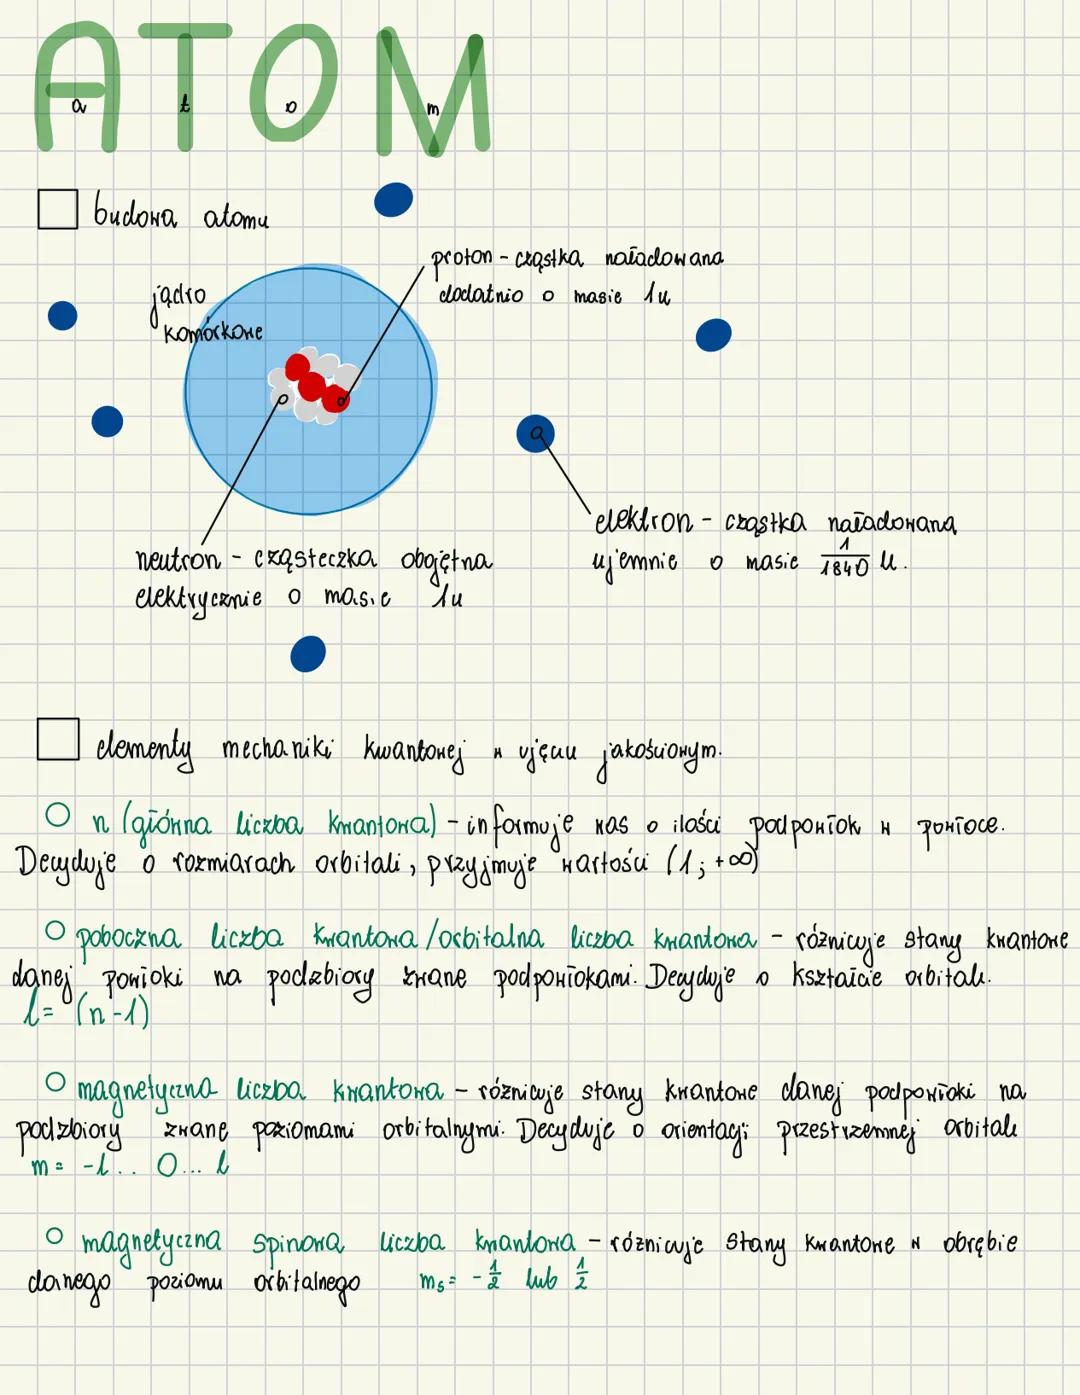 ATOM
a t o m
budowa atomu
proton - cząstka naładowana
dodatnio o masie 1u
jądro
komórkowe
elektron - cząstka naładowana
ujemnie o masie 1/1840 u.
neutron - cząsteczka obojętna
elektrycznie o masie 1u
elementy mechaniki kwantowej w ujęciu jakościowym.
n (główna liczba kwantowa) - informuje nas o ilości podpowłok w powłoce.
Decyduje o rozmiarach orbitali, przyjmuje wartości (1; +∞)
poboczna liczba kwantowa/orbitalna liczba kwantowa - różnicuje stany kwantowe
danej powłoki na podzbiory zwane podpowłokami. Decyduje o kształcie orbitali.
l= (n-1)
magnetyczna liczba kwantowa - różnicuje stany kwantowe danej podpowłoki na
podzbiory zwane poziomami orbitalnymi. Decyduje o orientacji przestrzennej orbitali
m= -l.. 0... l
magnetyczna spinowa liczba kwantowa - różnicuje stany kwantowe w obrębie
danego poziomu orbitalnego ms= -1/2 lub 1/2